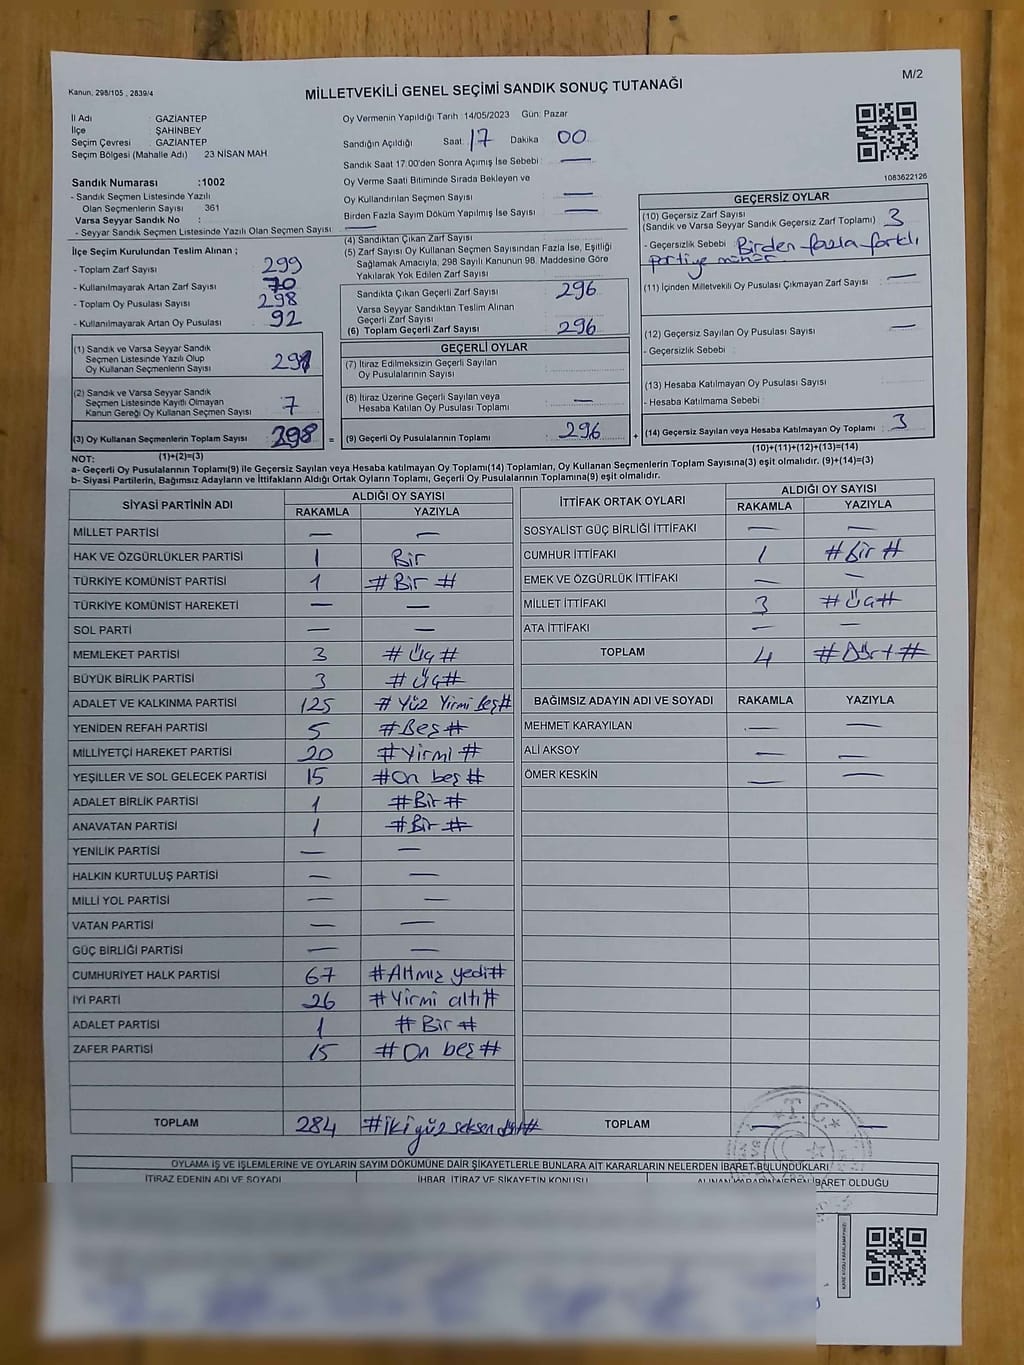 Kanun, 298/105 , 2839/4
MİLLETVEKİLİ GENEL SEÇİMİ SANDIK SONUÇ TUTANAĞI
M/2
İl Adı : GAZİANTEP
İlçe : ŞAHİNBEY
Seçim Çevresi : GAZİANTEP
Seçim Bölgesi (Mahalle Adı) 23 NİSAN MAH
Sandık Numarası :1002
- Sandık Seçmen Listesinde Yazılı
Olan Seçmenlerin Sayısı 361
Varsa Seyyar Sandık No :
- Seyyar Sandık Seçmen Listesinde Yazılı Olan Seçmen Sayısı —
Oy Vermenin Yapıldığı Tarih :14/05/2023 Gün: Pazar
Sandığın Açıldığı Saat 17 Dakika 00
Sandık Saat 17.00'den Sonra Açımış İse Sebebi : —
Oy Verme Saati Bitiminde Sırada Bekleyen ve
Oy Kullandırılan Seçmen Sayısı : —
Birden Fazla Sayım Döküm Yapılmış İse Sayısı : —
1083622126
İlçe Seçim Kurulundan Teslim Alınan ;
- Toplam Zarf Sayısı : 299
- Kullanılmayarak Artan Zarf Sayısı : 70
- Toplam Oy Pusulası Sayısı : 298
- Kullanılmayarak Artan Oy Pusulası : 92
(1) Sandık ve Varsa Seyyar Sandık
Seçmen Listesinde Yazılı Olup
Oy Kullanan Seçmenlerin Sayısı :
(2) Sandık ve Varsa Seyyar Sandık
Seçmen Listesinde Kayıtlı Olmayan
Kanun Gereği Oy Kullanan Seçmen Sayısı : 7
(3) Oy Kullanan Seçmenlerin Toplam Sayısı : 298 =
(1)+(2)=(3)
(4) Sandıktan Çıkan Zarf Sayısı :
(5) Zarf Sayısı Oy Kullanan Seçmen Sayısından Fazla İse, Eşitliği
Sağlamak Amacıyla, 298 Sayılı Kanunun 98. Maddesine Göre
Yakılarak Yok Edilen Zarf Sayısı :
Sandıkta Çıkan Geçerli Zarf Sayısı : 296
Varsa Seyyar Sandıktan Teslim Alınan
Geçerli Zarf Sayısı :
(6) Toplam Geçerli Zarf Sayısı : 296
GEÇERLİ OYLAR
(7) İtiraz Edilmeksizin Geçerli Sayılan
Oy Pusulalarının Sayısı :
(8) İtiraz Üzerine Geçerli Sayılan veya
Hesaba Katılan Oy Pusulası Toplamı : —
(9) Geçerli Oy Pusulalarının Toplamı : 296 +
GEÇERSİZ OYLAR
(10) Geçersiz Zarf Sayısı
(Sandık ve Varsa Seyyar Sandık Geçersiz Zarf Toplamı) : 3
- Geçersizlik Sebebi : Birden fazla farklı
partiye mühür
(11) İçinden Milletvekili Oy Pusulası Çıkmayan Zarf Sayısı : —
(12) Geçersiz Sayılan Oy Pusulası Sayısı : —
- Geçersizlik Sebebi :
(13) Hesaba Katılmayan Oy Pusulası Sayısı :
- Hesaba Katılmama Sebebi :
(14) Geçersiz Sayılan veya Hesaba Katılmayan Oy Toplamı : 3
(10)+(11)+(12)+(13)=(14)
NOT:
a- Geçerli Oy Pusulalarının Toplamı(9) ile Geçersiz Sayılan veya Hesaba katılmayan Oy Toplamı(14) Toplamları, Oy Kullanan Seçmenlerin Toplam Sayısına(3) eşit olmalıdır. (9)+(14)=(3)
b- Siyasi Partilerin, Bağımsız Adayların ve İttifakların Aldığı Ortak Oyların Toplamı, Geçerli Oy Pusulalarının Toplamına(9) eşit olmalıdır.
SİYASİ PARTİNİN ADI ALDIĞI OY SAYISI
RAKAMLA YAZIYLA
MİLLET PARTİSİ — —
HAK VE ÖZGÜRLÜKLER PARTİSİ 1 Bir
TÜRKİYE KOMÜNİST PARTİSİ 1 # Bir #
TÜRKİYE KOMÜNİST HAREKETİ — —
SOL PARTİ — —
MEMLEKET PARTİSİ 3 # Üç #
BÜYÜK BİRLİK PARTİSİ 3 # Üç #
ADALET VE KALKINMA PARTİSİ 125 # Yüz Yirmi beş #
YENİDEN REFAH PARTİSİ 5 # Beş #
MİLLİYETÇİ HAREKET PARTİSİ 20 # Yirmi #
YEŞİLLER VE SOL GELECEK PARTİSİ 15 # On beş #
ADALET BİRLİK PARTİSİ 1 # Bir #
ANAVATAN PARTİSİ 1 # Bir #
YENİLİK PARTİSİ — —
HALKIN KURTULUŞ PARTİSİ — —
MİLLİ YOL PARTİSİ — —
VATAN PARTİSİ — —
GÜÇ BİRLİĞİ PARTİSİ — —
CUMHURİYET HALK PARTİSİ 67 # Altmış yedi #
İYİ PARTİ 26 # Yirmi altı #
ADALET PARTİSİ 1 # Bir #
ZAFER PARTİSİ 15 # On beş #
TOPLAM 284 # iki yüz seksen dört #
İTTİFAK ORTAK OYLARI ALDIĞI OY SAYISI
RAKAMLA YAZIYLA
SOSYALİST GÜÇ BİRLİĞİ İTTİFAKI — —
CUMHUR İTTİFAKI 1 # Bir #
EMEK VE ÖZGÜRLÜK İTTİFAKI — —
MİLLET İTTİFAKI 3 # Üç #
ATA İTTİFAKI — —
TOPLAM 4 # Dört #
BAĞIMSIZ ADAYIN ADI VE SOYADI RAKAMLA YAZIYLA
MEHMET KARAYILAN — —
ALİ AKSOY — —
ÖMER KESKİN — —
TOPLAM — —
T.C.
OYLAMA İŞ VE İŞLEMLERİNE VE OYLARIN SAYIM DÖKÜMÜNE DAİR ŞİKAYETLERLE BUNLARA AİT KARARLARIN NELERDEN İBARET BULUNDUKLARI
İTİRAZ EDENİN ADI VE SOYADI İHBAR, İTİRAZ VE ŞİKAYETİN KONUSU ALINAN KARARIN NEDEN İBARET OLDUĞU